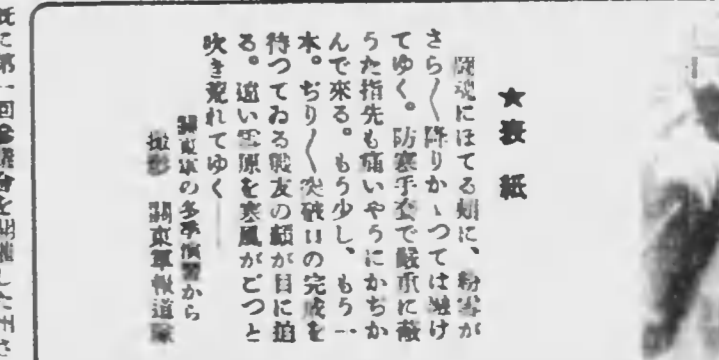 ★表紙
闘魂にほてる頬に、粉雪が
さら〱降りかゝつては融け
てゆく。防寒手套で厳重に蔽
うた指先も痛いやうにかちか
んで來る。もう少し、もう一
本。ぢり〱突破口の完成を
待つてゐる戰友の顔が目に迫
る。遠い雪原を寒風がごつと
吹き荒れてゆく――
關東軍の冬季演習から
撮影　關東軍報道隊
既に第一回會議會を開催した